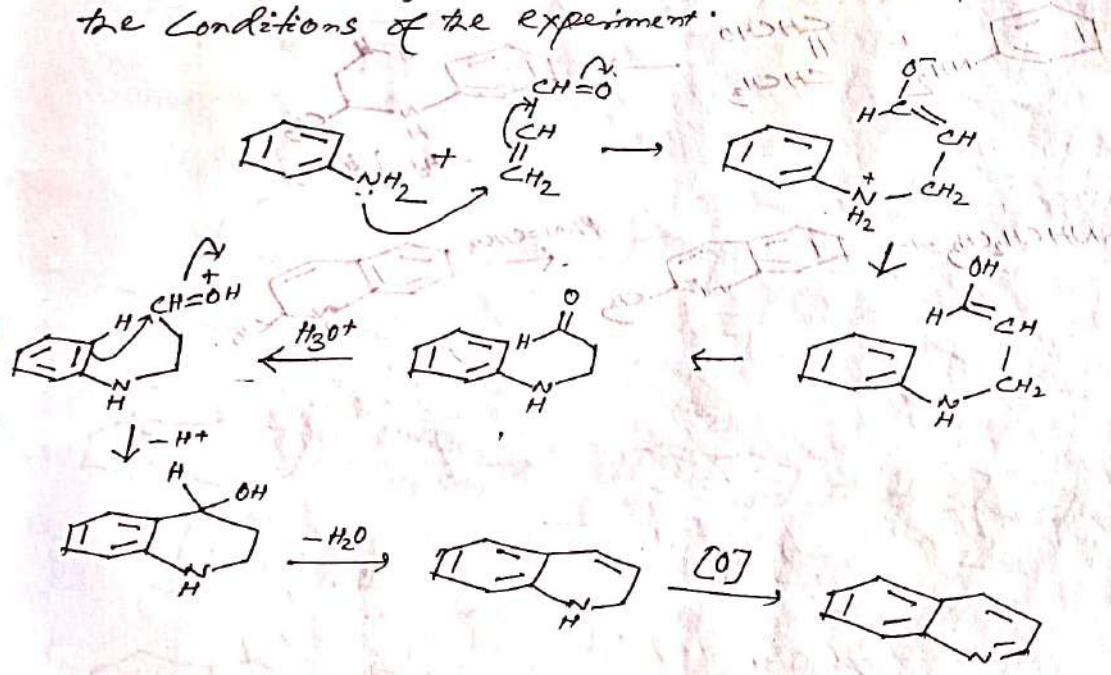 the conditions of the experiment.
CH=O
CH
CH2
NH2
+
O-
H C CH
CH2
N+
H2
OH
H C CH
CH2
N
H
O
H
N
H
H3O+
CH=OH
+
H
N
H
-H+
H
OH
N
H
-H2O
N
H
[O]
N